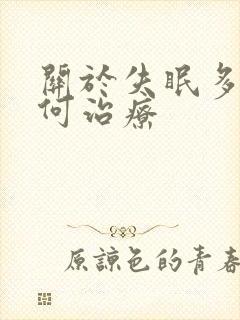 關於失眠多
何治療
原諒色的青春